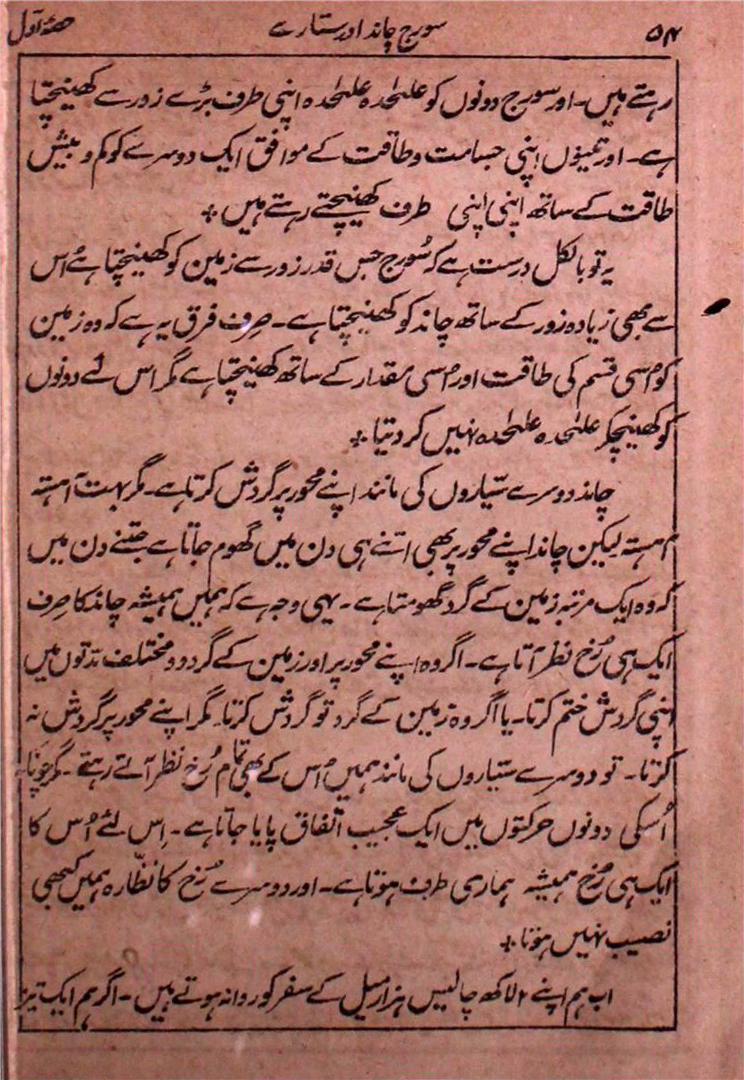 ۵۴ سورج چاند اور ستارے حصۂ اول
رہتے ہیں۔ اور سورج دونوں کو علیٰحدہ علیٰحدہ اپنی طرف بڑے زور سے کھینچتا
ہے۔ اور تینوں اپنی جسامت و طاقت کے موافق ایک دوسرے کو کم و بیش
طاقت کے ساتھ اپنی اپنی طرف کھینچتے رہتے ہیں ٭
یہ تو بالکل درست ہے کہ سُورج جس قدر زور سے زمین کو کھینچتا ہے اُس
سے بھی زیادہ زور کے ساتھ چاند کو کھینچتا ہے۔ صِرف فرق یہ ہے کہ وہ زمین
کو اُسی قسم کی طاقت اور اُسی مقدار کے ساتھ کھینچتا ہے مگر اس لئے دونوں
کو کھینچکر علیٰحدہ علیٰحدہ نہیں کر دیتا ٭
چاند دوسرے ستیاروں کی مانند اپنے محور پر گردش کرتا ہے۔ مگر بہت آہستہ
آہستہ لیکن چاند اپنے محور پر بھی اتنے ہی دن میں گھوم جاتا ہے جتنے دن میں
کہ وہ ایک مرتبہ زمین کے گرد گھومتا ہے۔ یہی وجہ ہے کہ ہمیں ہمیشہ چاند کا صِرف
ایک ہی رُخ نظر آتا ہے۔ اگر وہ اپنے محور پر اور زمین کے گرد دو مختلف مدتوں میں
اپنی گردش ختم کرتا۔ یا اگر وہ زمین کے گرد تو گردش کرتا۔ مگر اپنے محور پر گردش نہ
کرتا۔ تو دوسرے ستیاروں کی مانند ہمیں اُس کے بھی تمام رُخ نظر آتے رہتے۔ مگر چونکہ
اُسکی دونوں حرکتوں میں ایک عجیب اتفاق پایا جاتا ہے۔ اِس لئے اُس کا
ایک ہی رُخ ہمیشہ ہماری طرف ہوتا ہے۔ اور دوسرے رُخ کا نظّارہ ہمیں کبھی
نصیب نہیں ہوتا ٭
اب ہم اپنے ۲ لاکھ چالیس ہزار میل کے سفر کو روانہ ہوتے ہیں۔ اگر ہم ایک تیز